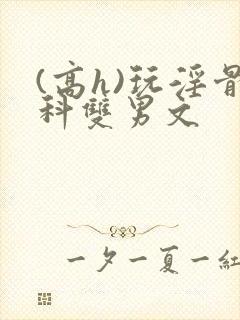 (高h)玩淫骨
科雙男文
一夕一夏一紅